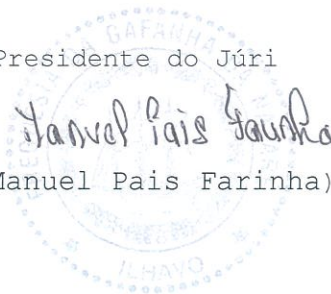 Presidente do Júri
Manuel Pais Farinha
Manuel Pais Farinha)
GAFANHA
ILHAVO